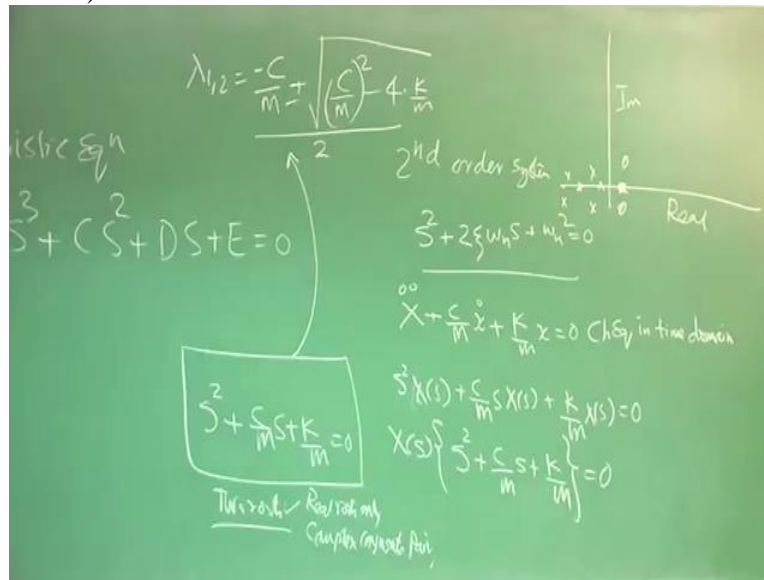 λ₁,₂ = -C/m ± √((C/m)² - 4·K/m) / 2
istic Eqⁿ
S³ + CS² + DS + E = 0
2nd order System
Im
Real
S² + 2ξωₙS + ωₙ² = 0
ẍ + C/m ẋ + K/m x = 0 Ch Eq in time domain
S²X(s) + C/m SX(s) + K/m X(s) = 0
X(s){S² + C/m S + K/m} = 0
S² + C/m S + K/m = 0
Two roots ✓ Real roots only
Complex conjugate Pair